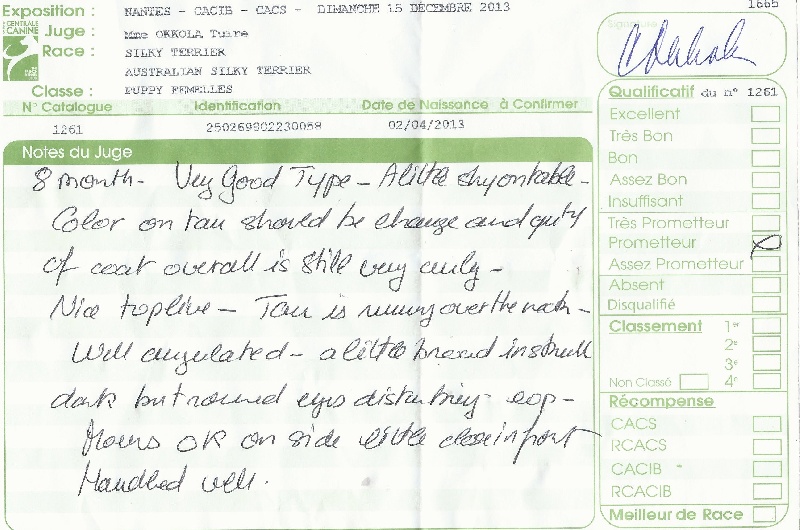 1665
Exposition : NANTES - CACIB - CACS - DIMANCHE 15 DÉCEMBRE 2013
CENTRALE CANINE
Juge : Mme OKKOLA Tuire
Race : SILKY TERRIER
AUSTRALIAN SILKY TERRIER
Classe : PUPPY FEMELLES
N° Catalogue Identification Date de Naissance à Confirmer
1261 250269802230058 02/04/2013
Notes du Juge
8 month - Very Good Type - A little shy on table -
Color on tan should be change and
of coat overall is still very curly -
Nice topline - Tan is runing over the neck -
Well angulated - a little broad in skull
dark but round eyes disturbing exp -
Moves OK on side little close in front
Handled well.
Signature
Qualificatif du n° 1261
Excellent
Très Bon
Bon
Assez Bon
Insuffisant
Très Prometteur
Prometteur X
Assez Prometteur
Absent
Disqualifié
Classement 1er
2e
3e
Non Classé 4e
Récompense
CACS
RCACS
CACIB
RCACIB
Meilleur de Race